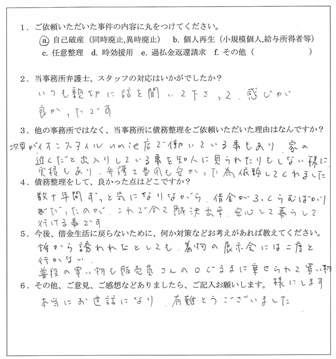 1. ご依頼いただいた事件の内容に丸をつけてください。
a. 自己破産(同時廃止,異時廃止) b. 個人再生(小規模個人,給与所得者等)
c. 任意整理 d. 時効援用 e. 過払金返還請求 f. その他( )
2. 当事務所弁護士、スタッフの対応はいかがでしたか?
いつも親切に話を聞いて下さって、感じが
良かったです
3. 他の事務所ではなく、当事務所に債務整理をご依頼いただいた理由はなんですか?
池店で働いている事もあり、家の
近くだと出入りしている事を知人に見られたりもしない様に
実績もあり、弁護士費用も安かった為依頼してくれました
4. 債務整理をして、良かった点はどこですか?
数十年間ずっと気になりながら、借金がふくらむばかり
だったのが、これで全て解決出来、安心して暮らして
行ける事です
5. 今後、借金生活に戻らないために、何か対策などお考えがあれば教えてください。
誰から誘われたとしても、着物の展示会には二度と
行かない。
普段の買い物も販売員さんの口ぐるまに乗せられて買い物
6. その他、ご意見、ご感想などありましたら、ご記入お願いします。 様にします
本当にお世話になり、有難とうございました